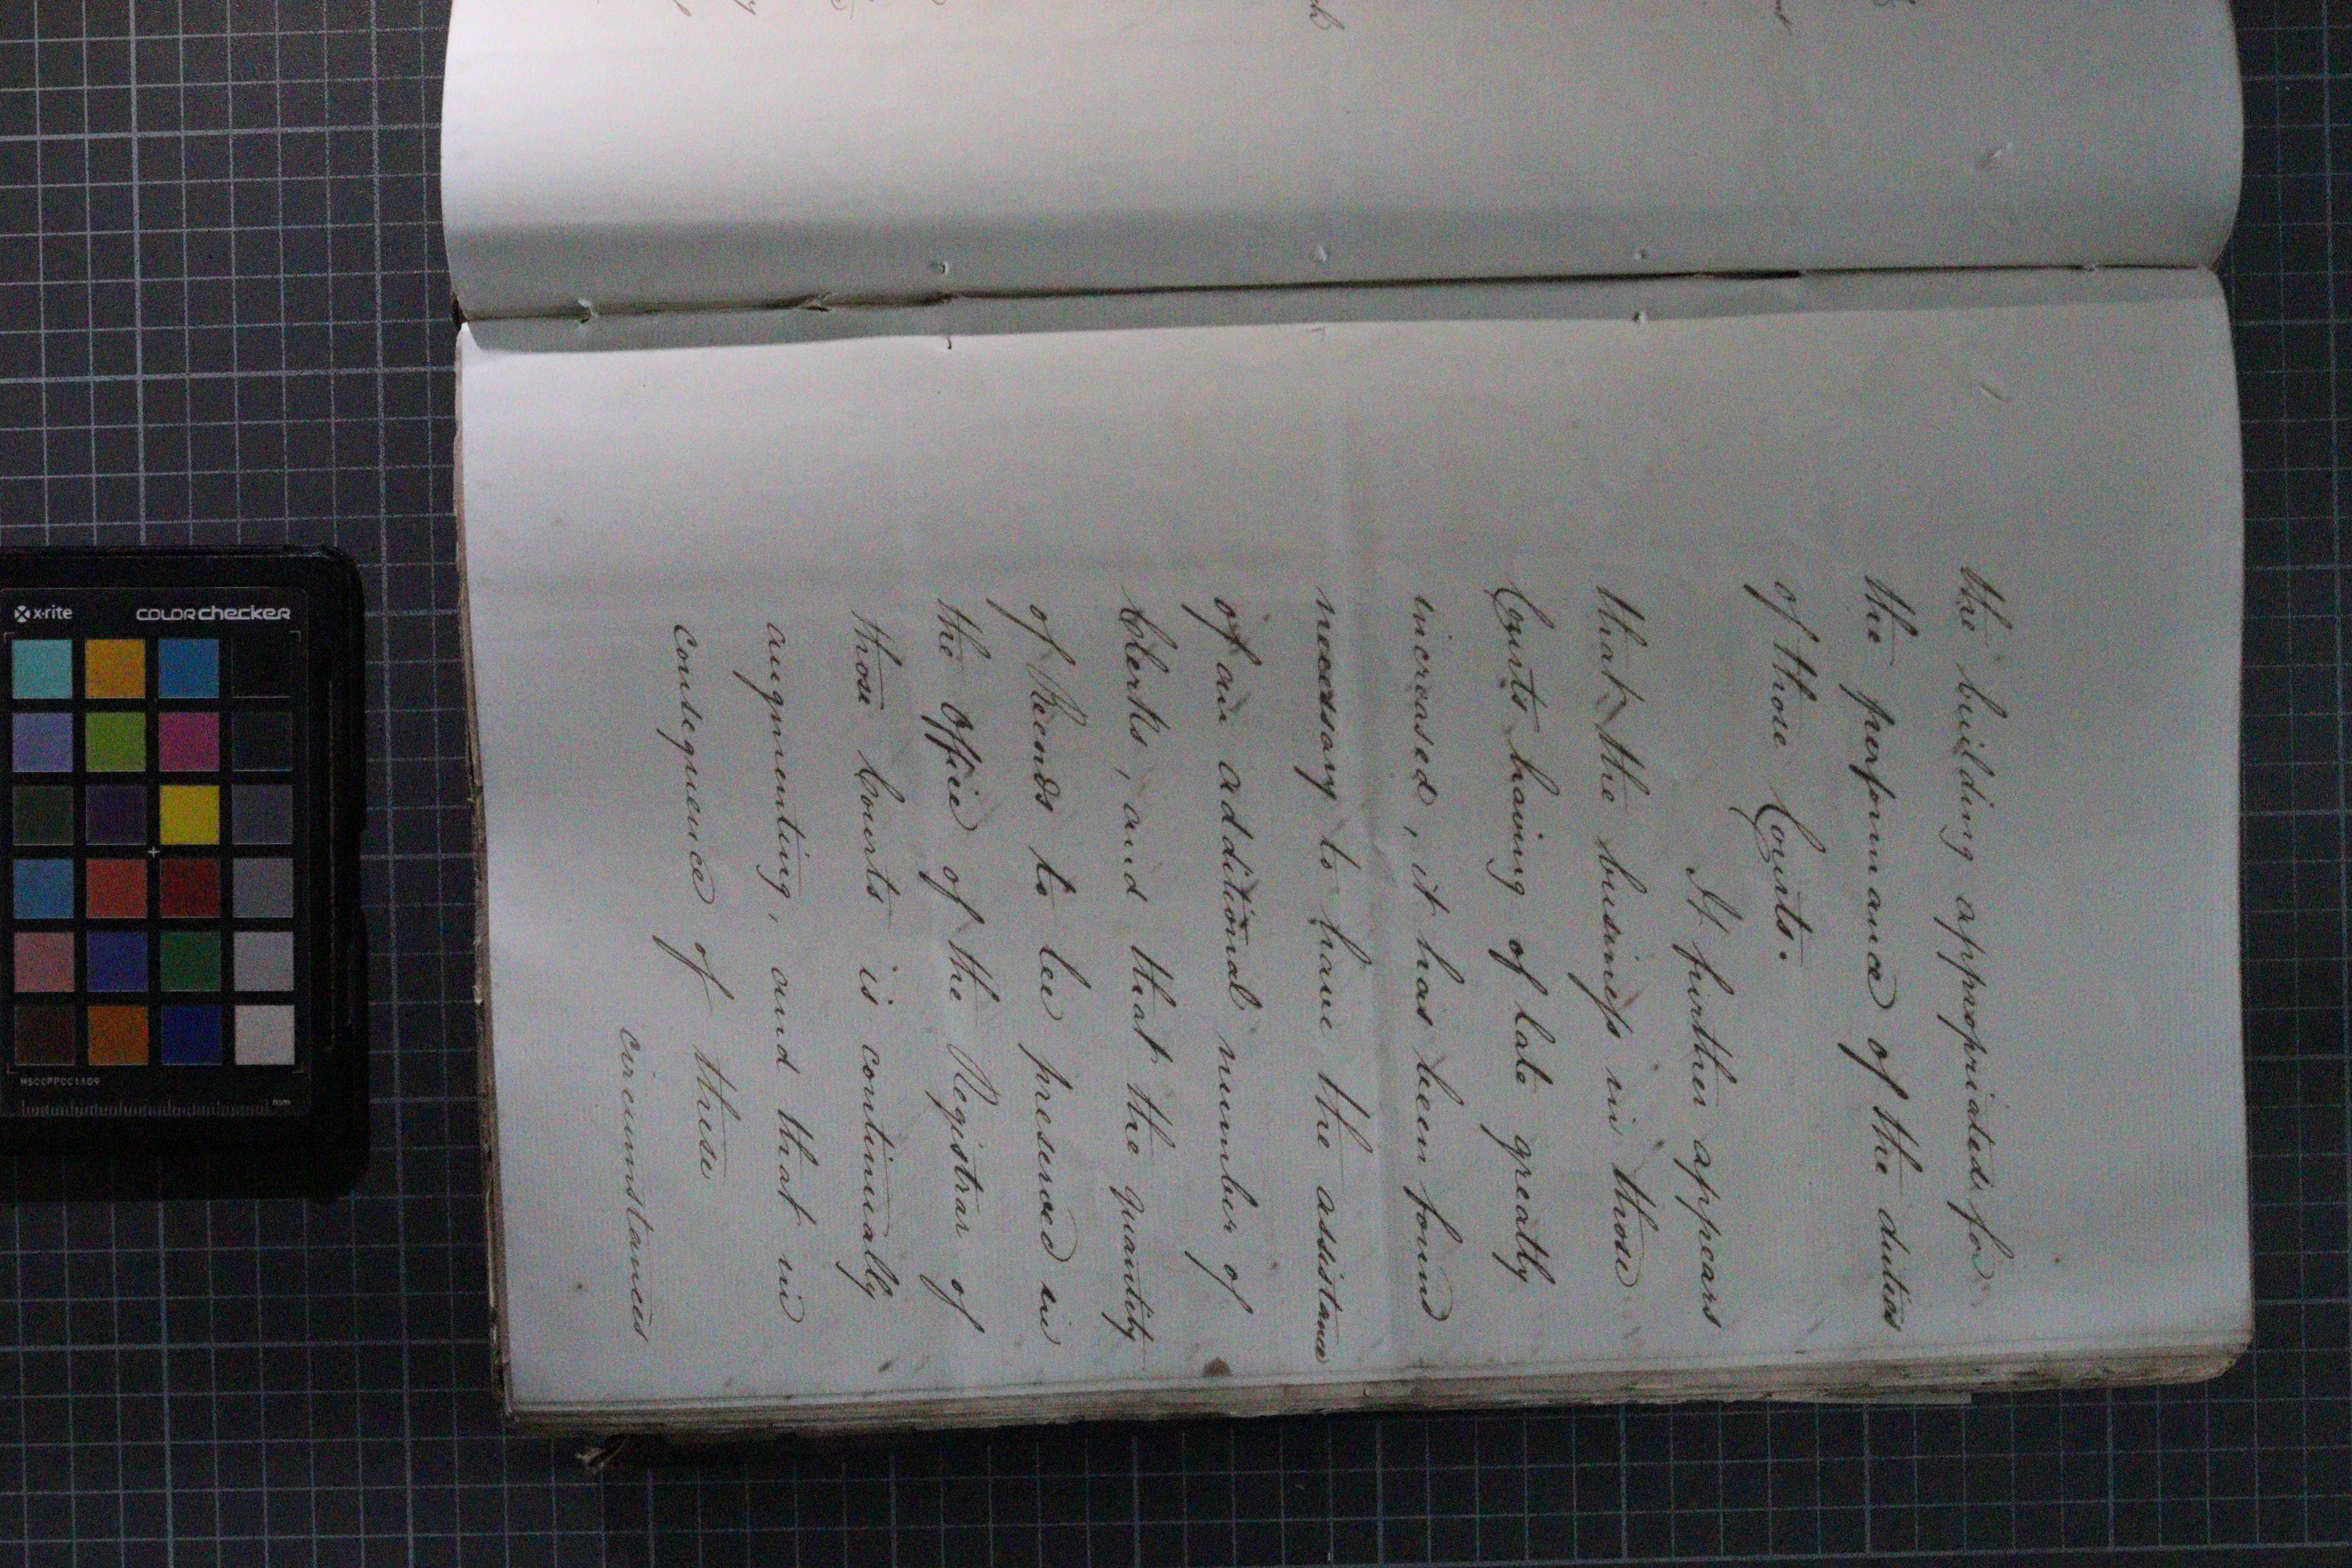 the building appropriated for
the performance of the duties
of those Courts.
It further appears
that the business in those
Courts having of late greatly
increased, it has been found
necessary to have the assistance
of an additional number of
Clerks, and that the quantity
of Records to be preserved in
the Office of the Registrar of
those Courts is continually
augmenting, and that in
consequence of these
circumstances
x-rite colorchecker
MSCCPPCC1109
mm